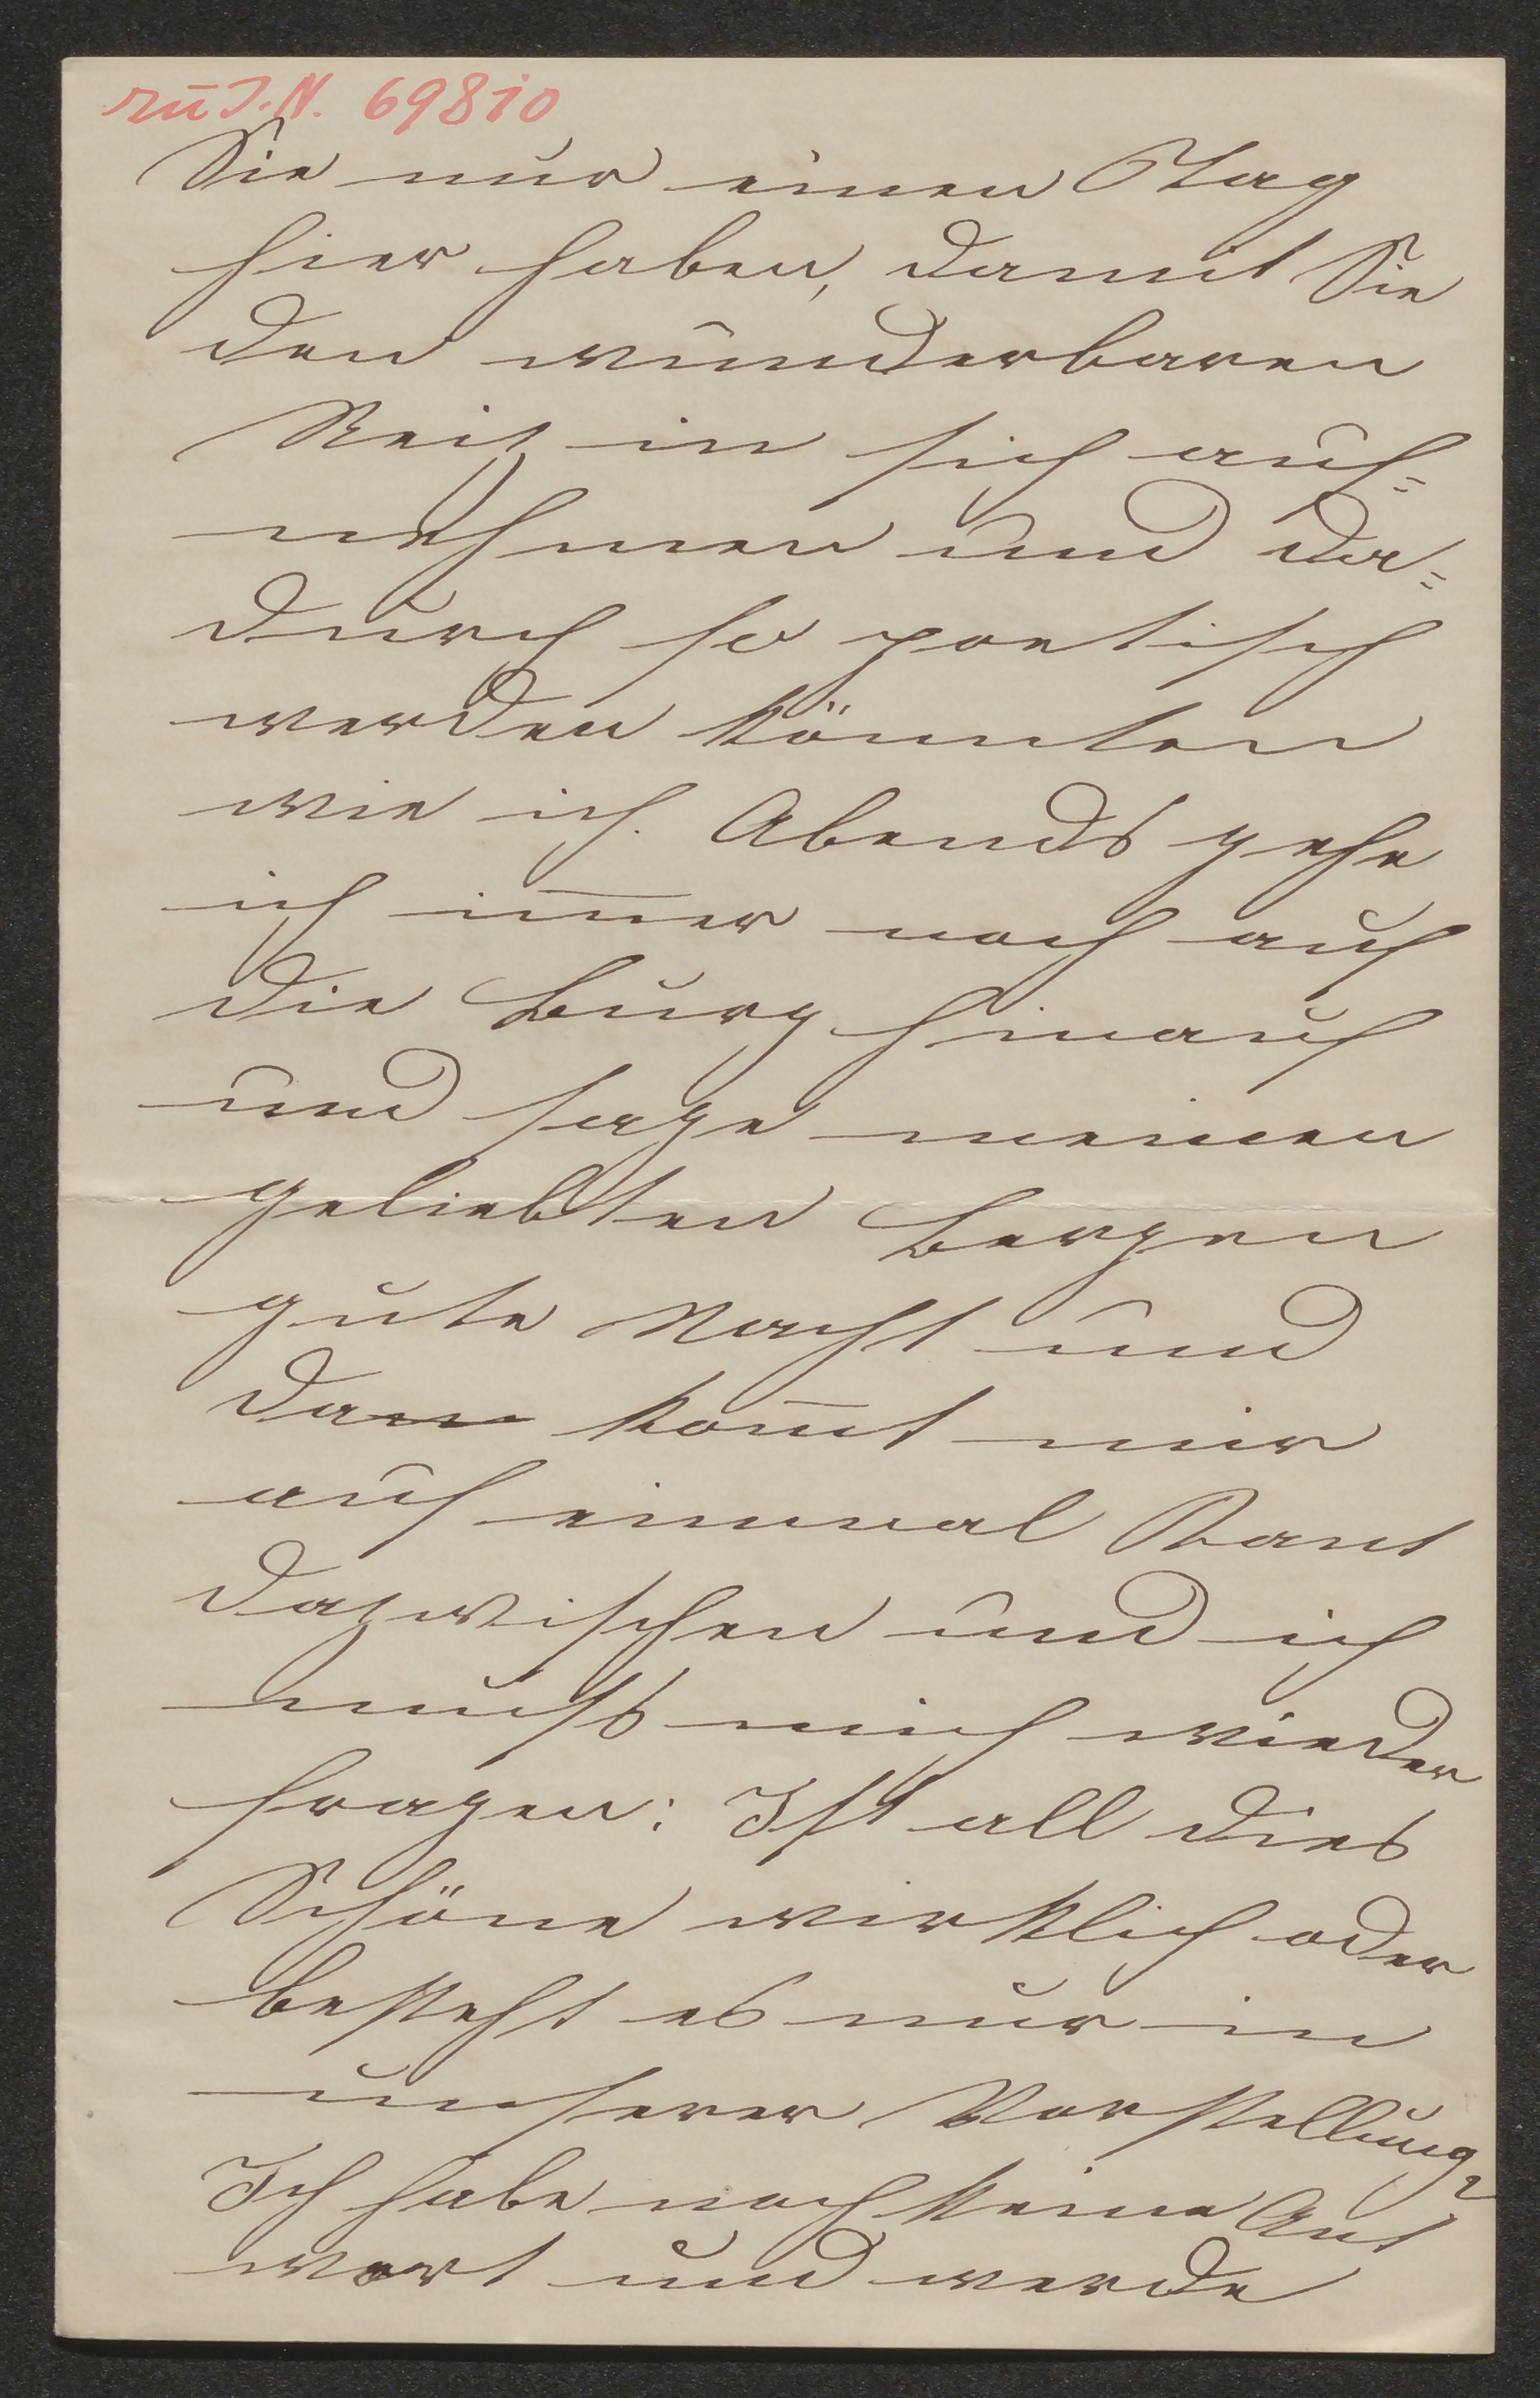 zu I.N. 69810
Sie nur einen Tag
hier haben, damit Sie
den wunderbaren
Reiz in sich auf=
nehmen und da=
durch so poetisch
werden könnten
wie ich. Abends gehe
ich im̅er noch auf
die Burg hinauf
und sage meinen
geliebten Bergen
gute Nacht und
dann kom̅t mir
auf einmal Kant
dazwischen und ich
muß mich wieder
fragen: Ist all dies
Schöne wirklich oder
besteht es nur in
unserer Vorstellung?
Ich habe noch keine Ant
wort und werde